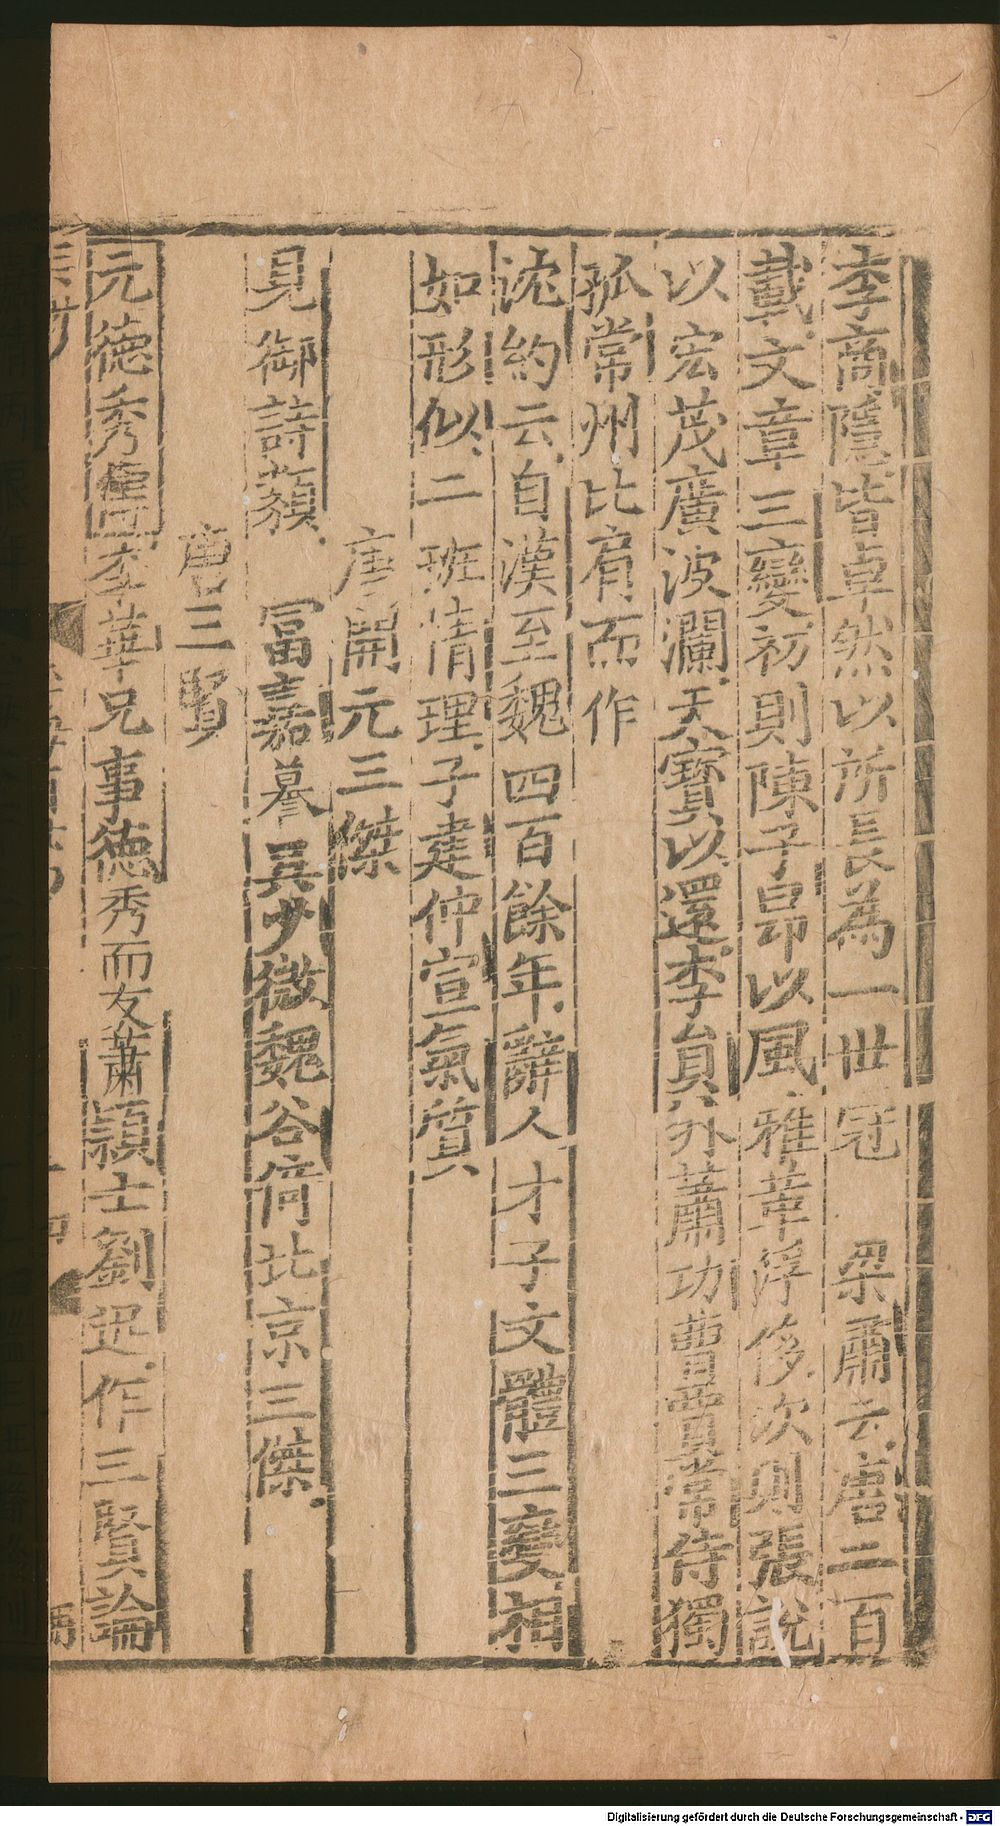 李商隱皆卓然以所長為一世冠　梁肅云唐二百
載文章三變初則陳子昻以風雅革浮侈次則張說
以宏茂廣波瀾天寶以還李員外蕭功曹賈常侍獨
孤常州比肩而作
沈約云自漢至魏四百餘年辭人才子文體三變相
如形似二班情理子建仲宣氣質
唐開元三傑
見御詩蘱　冨嘉謩吳少微魏谷倚北京三傑
唐三賢
元德秀魯山李華兄事德秀而友蕭穎士劉迅作三賢論
Digitalisierung gefördert durch die Deutsche Forschungsgemeinschaft - DFG